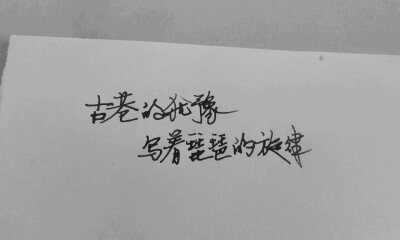 古巷的犹豫
写着琵琶的旋律